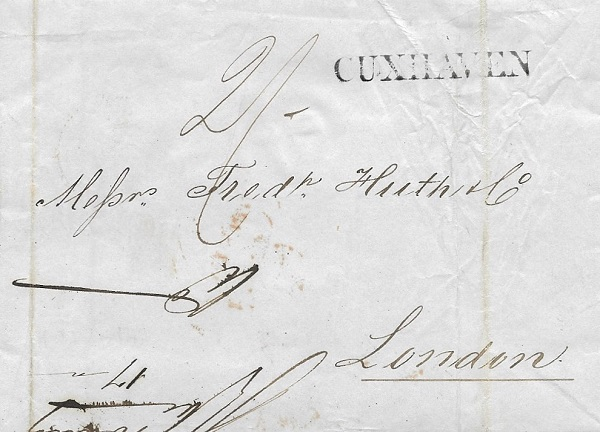 CUXHAVEN
2/-
Messrs. Fredk. Huth & Co
London.
17